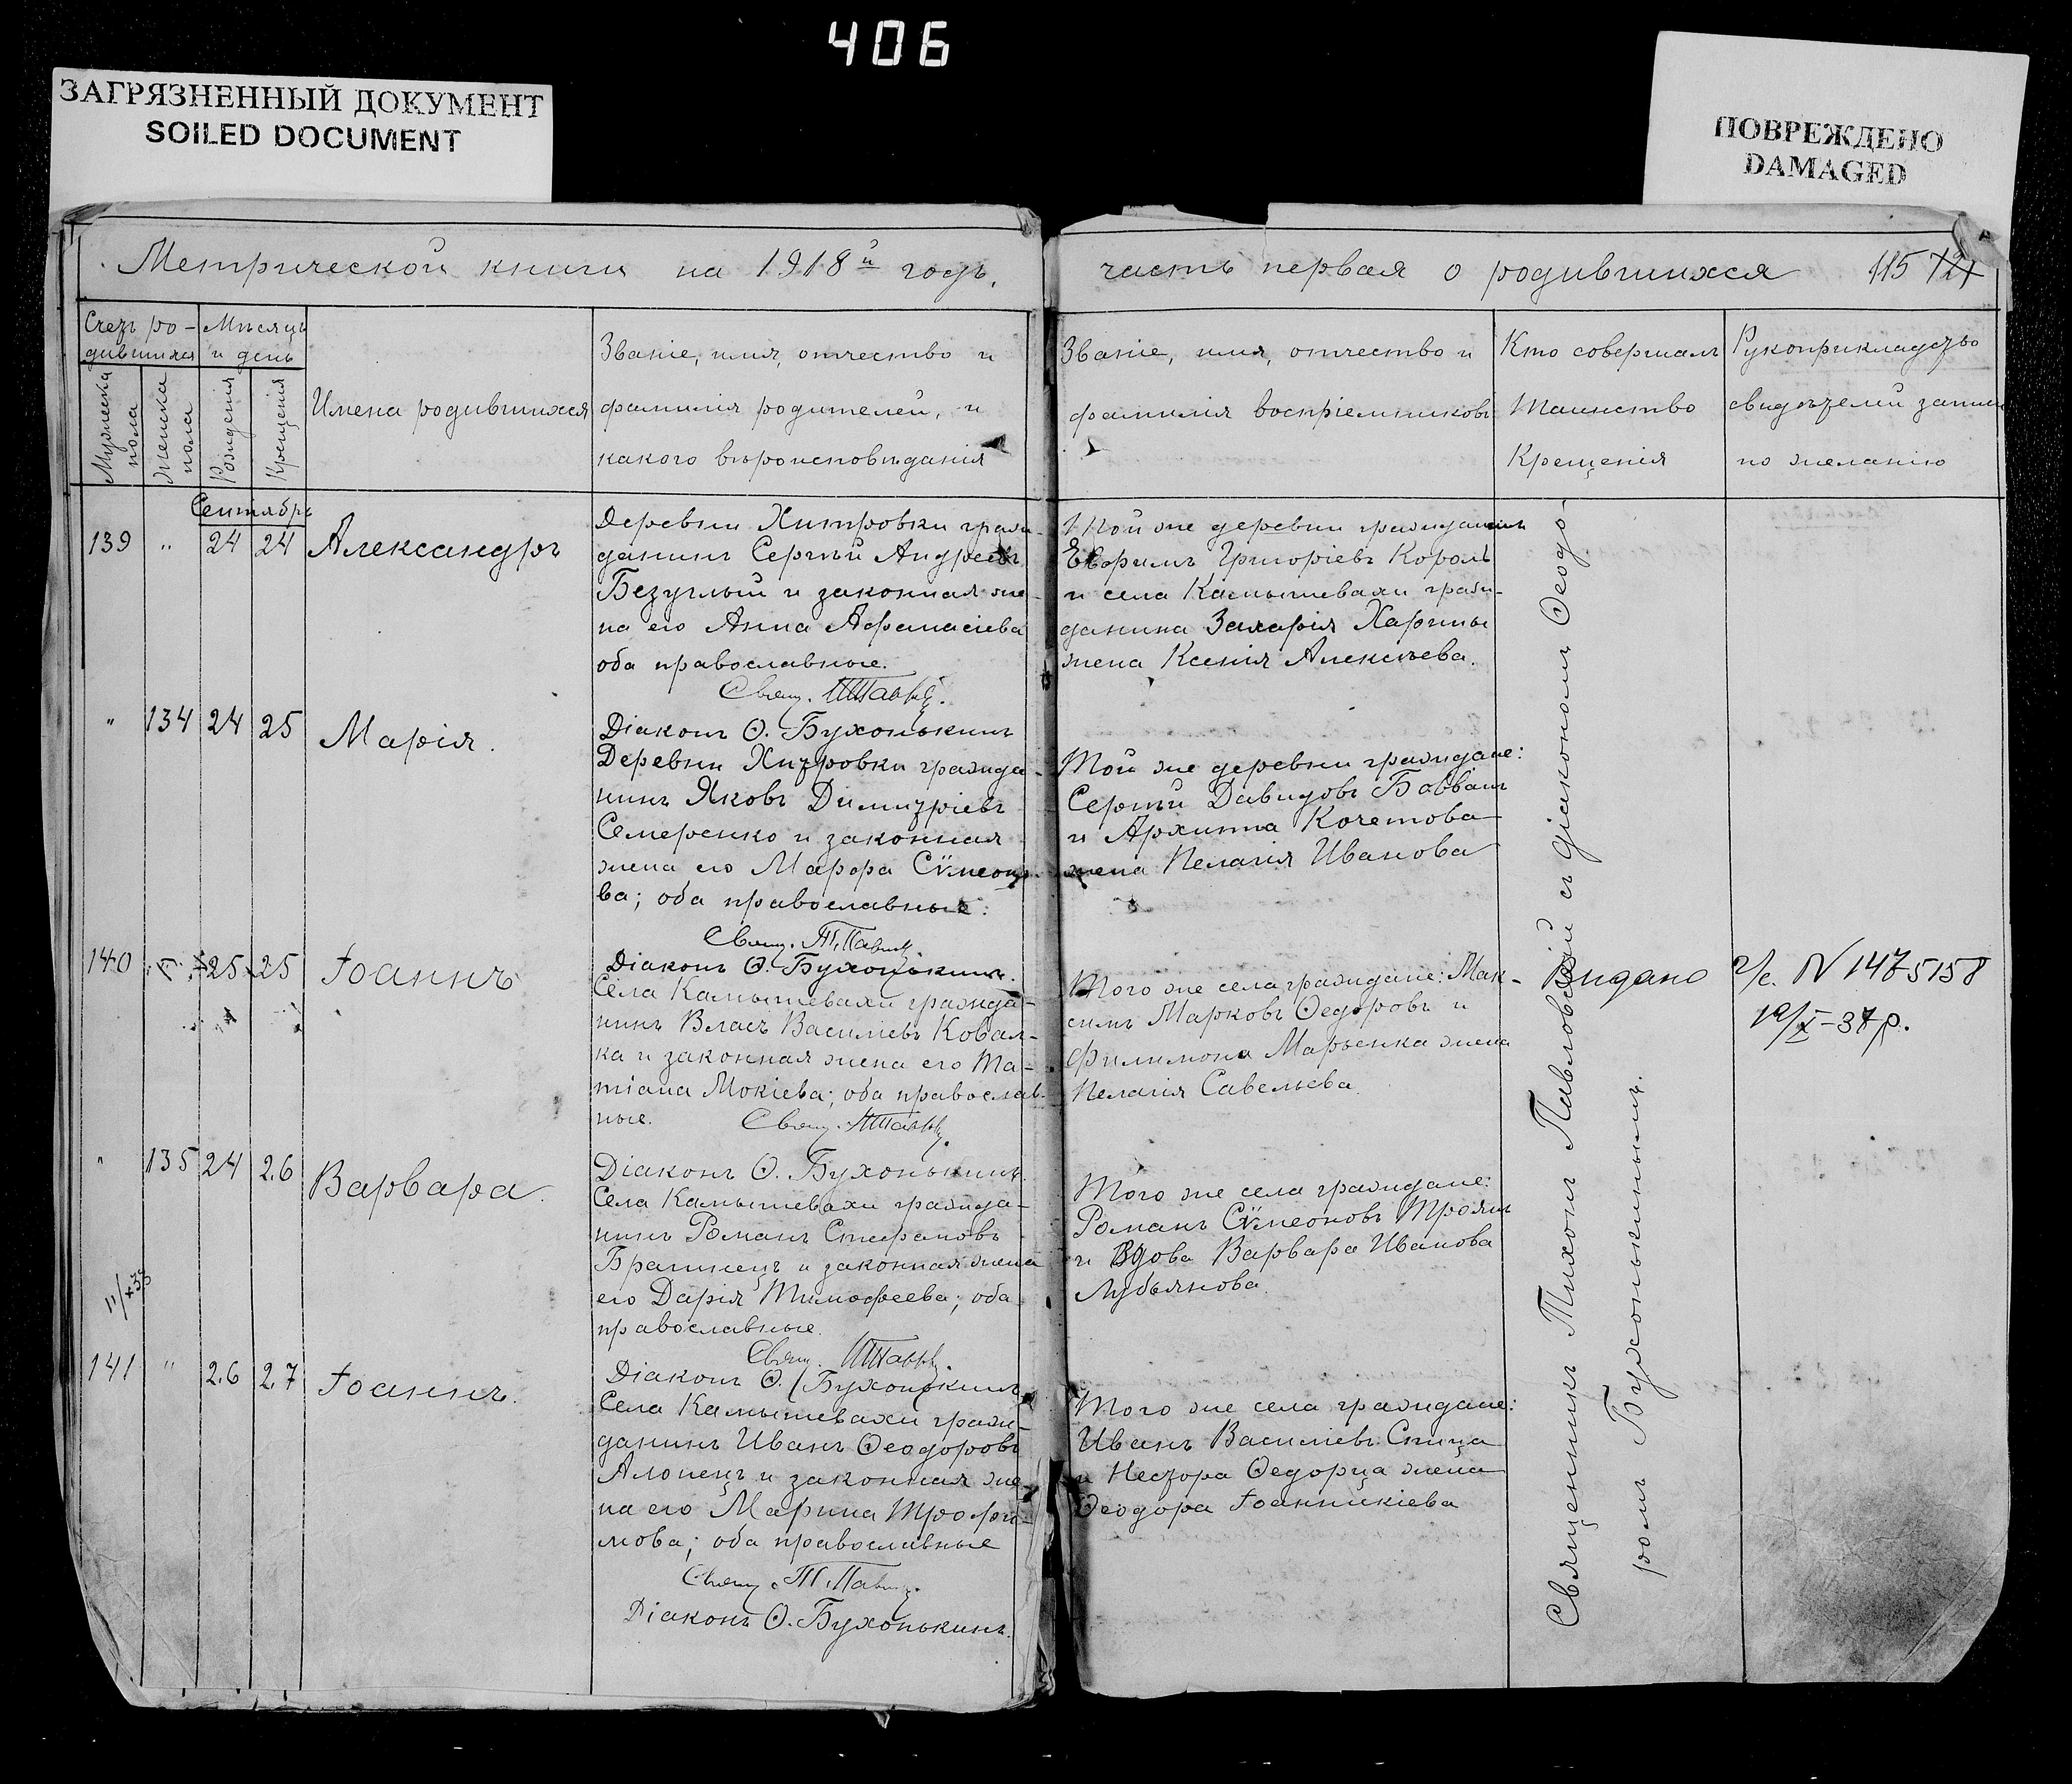 406
ЗАГРЯЗНЕННЫЙ ДОКУМЕНТ
SOILED DOCUMENT
ПОВРЕЖДЕНО
DAMAGED
Метрической книги на 1918й годъ.
часть первая о родившихся 115 121
Счетъ ро-
дившихся
Мѣсяцъ
и день
Мужеска
пола
Женска
пола
Рожденія
Крещенія
Имена родившихся
Званіе, имя, отчество и
фамилія родителей, и
какого вѣроисповѣданія
Званіе, имя, отчество и
фамилія воспріемниковъ
Кто совершалъ
Таинство
Крещенія
Рукоприкладство
свидѣтелей записи
по желанію
Сентябрь
139 " 24 24 Александръ
Деревни Хитровки граж-
данинъ Сергѣй Андреевъ
Безуглый и законная же-
на его Анна Афанасіева
оба православные.
Свящ.
Діаконъ Ѳ. Бухонькинъ
Той же деревни гражданинъ
Евфимъ Григоріевъ Король
и села Камышевахи граж-
данина Захарія Харины
жена Ксенія Алексѣева.
" 134 24 25 Марія.
Деревни Хитровки гражда-
нинъ Яковъ Димитріевъ
Семеренко и законная
жена его Марфа Сѵмеоно-
ва; оба православные.
Свящ. Т. Павл
Діаконъ Ѳ. Бухонькинъ.
Той же деревни граждане:
Сергѣй Давидовъ Бовванъ
и Архиппа Кочетова
жена Пелагія Иванова
140 25 25 Іоаннъ
Села Камышевахи гражда-
нинъ Власъ Василіевъ Ковал-
ка и законная жена его Та-
тіана Мокіева; оба православ-
ные. Свящ.
Діаконъ Ѳ. Бухонькинъ.
Того же села граждане: Мак-
симъ Марковъ Ѳедоровъ и
Филимона Марьенка жена
Пелагія Савельева.
Видано г/с. N 1475158
19/X-37р.
" 135 24 26 Варвара.
Села Камышевахи гражда-
нинъ Романъ Стефановъ
Братнецъ и законная жена
его Дарія Тимофеева; оба
православные.
Свящ.
Діаконъ Ѳ. Бухонькинъ
Того же села граждане:
Романъ Сѵмеоновъ Троянъ
и вдова Варвара Иванова
Лубьянова.
141 " 26 27 Іоаннъ.
Села Камышевахи граж-
данинъ Иванъ Ѳеодоровъ
Алонецъ и законная же-
на его Марина Трофи-
мова; оба православные
Свящ. Т. Павл
Діаконъ Ѳ. Бухонькинъ.
Того же села граждане:
Иванъ Василіевъ Спица
и Нестора Ѳедорца жена
Ѳеодора Іоанникіева
Священникъ Тихонъ Павловскій съ діакономъ Ѳеодо-
ромъ Бухонькинымъ.